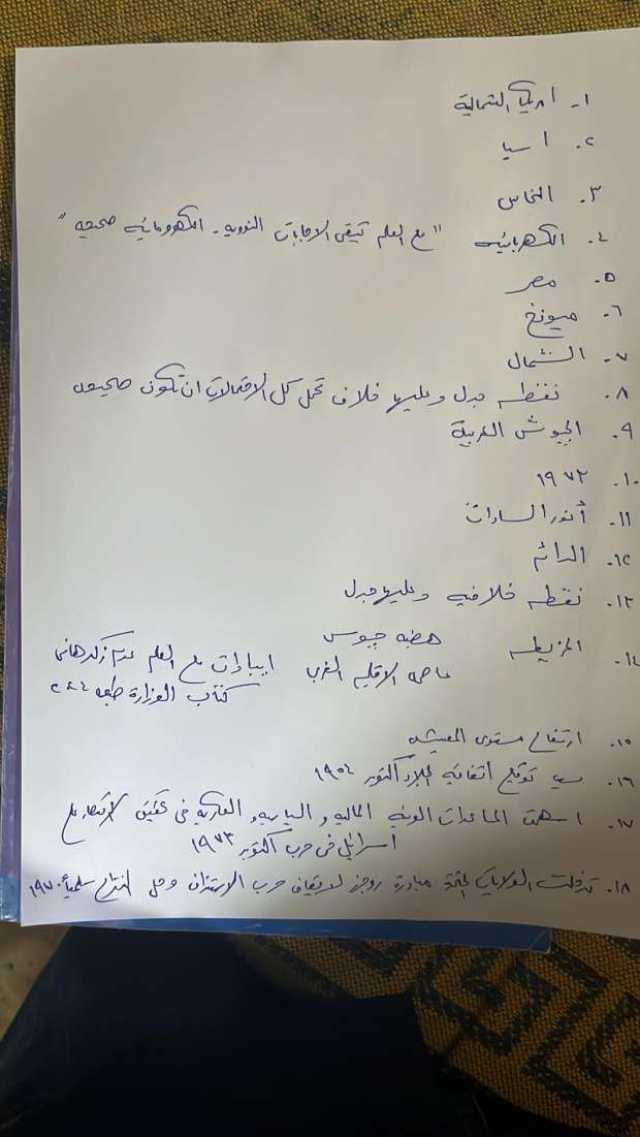 ١- امريكا الشمالية
٢. اسيا
٣. النحاس
٤. الكهربائيه "مع العلم تبقى الاجابات النوويه - الكهرومائيه صحيحه"
٥. مصر
٦- ميونخ
٧- الشمال
٨. نقطه جدل وعليها خلاف تحمل كل الاحتمالات ان تكون صحيحه
٩. الجيوش العربية
١٠. ١٩٧٣
١١. أنور السادات
١٢. الدائم
١٣. نقطه خلافيه وعليها جدل
١٤. الخريطه هضبه جيوس
عاصمه الاقليم الغربى ايبادات مع العلم عدم ذكرها فى
كتاب الوزارة طبعه ٢٠٢٤
١٥. ارتفاع مستوى المعيشه
١٦. سبب توقيع اتفاقيه الجلاء اكتوبر ١٩٥٤
١٧. اسهمت المساعدات العربيه الماليه و السياسيه و العسكريه فى تحقيق الانتصار على
اسرائيل فى حرب أكتوبر ١٩٧٣
١٨. تدخلت الولايات المتحدة مبادرة روجرز لايقاف حرب الاستنزاف وحل النزاع سلمياً ١٩٧٠